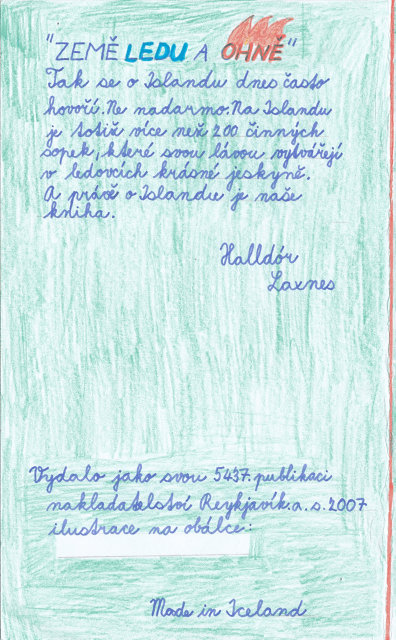 "ZEMĚ LEDU A OHNĚ"
Tak se o Islandu dnes často
hovoří. Ne nadarmo. Na Islandu
je totiž více než 200 činných
sopek, které svou lávou vytvářejí
v ledovcích krásné jeskyně.
A právě o Islandu je naše
kniha.
Halldór
Laxnes
Vydalo jako svou 5437. publikaci
nakladatelství Reykjavík.a.s.2007
ilustrace na obálce:
Made in Iceland